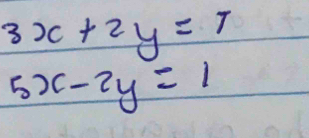 3x + 2y = 7
5x - 2y = 1